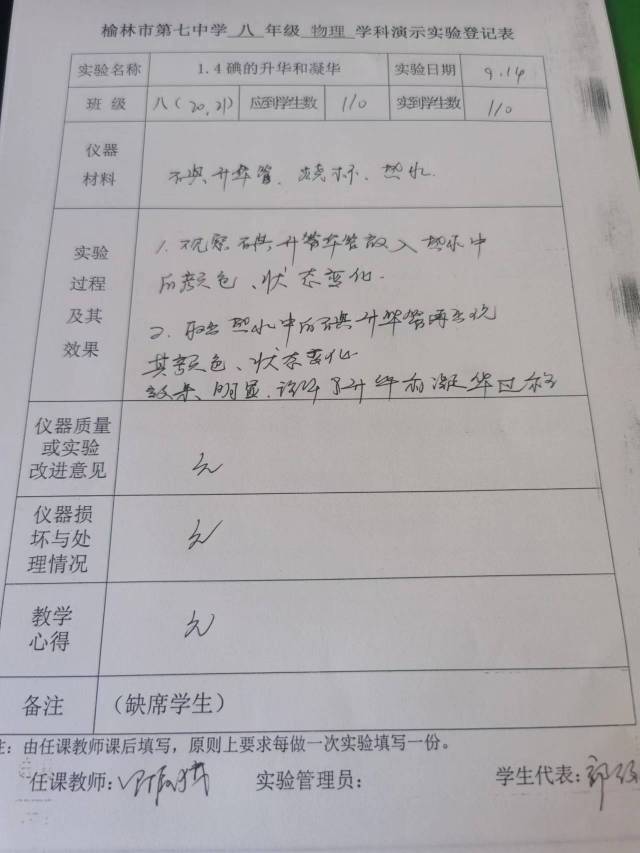 榆林市第七中学 八 年级 物理 学科演示实验登记表
实验名称 1.4碘的升华和凝华 实验日期 9.14
班 级 八(20,21) 应到学生数 110 实到学生数 110
仪器
材料
碘升华管、烧杯、热水.
实验
过程
及其
效果
1. 观察碘升华管放入热水中
的颜色、状态变化.
2. 取出热水中的碘升华管再观
其颜色、状态变化
效果明显,诠释了升华和凝华过程
仪器质量
或实验
改进意见
无
仪器损
坏与处
理情况
无
教学
心得
无
备注 (缺席学生)
注:由任课教师课后填写,原则上要求每做一次实验填写一份。
任课教师: 实验管理员: 学生代表: